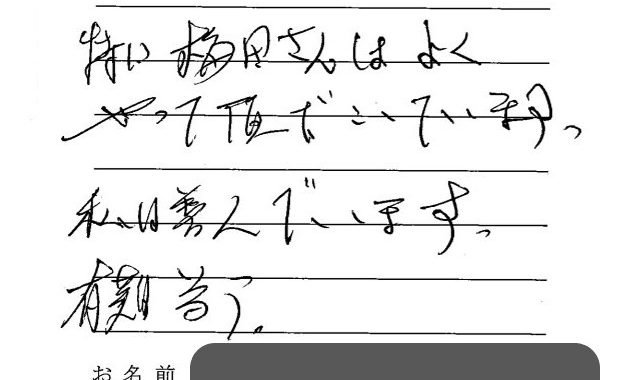 特に梅田さんはよく
やって頂だいています。
私は喜んでいます。
有難う。
お名前